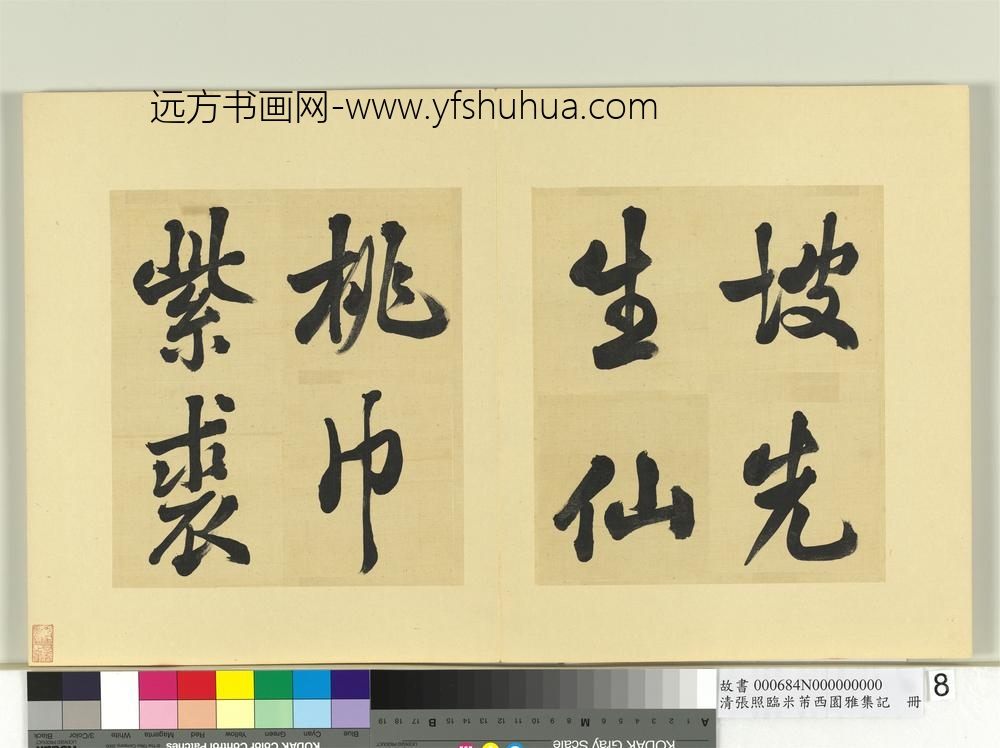 远方书画网-www.yfshuhua.com
坡先
生仙
桃巾
紫裘
故書 000684N000000000
清張照臨米芾西園雅集記 冊
8
Black
3/Color
White
Magenta
Red
Yellow
Green
Cyan
Blue
KODAK Color Control Patches
KODAK Gray Scale
A 1 2 3 4 5 6 M 8 9 10 11 12 13 14 15 B 17 18 19